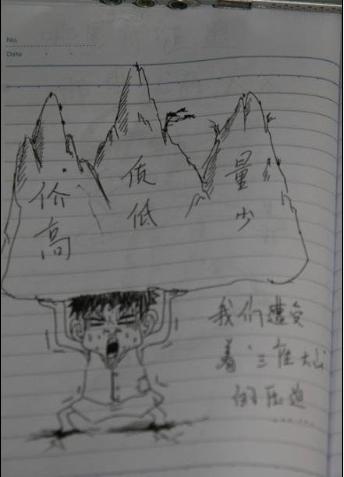 No.
Date
价高
质低
量少
我们遭受
着“三座大山”
的压迫
……